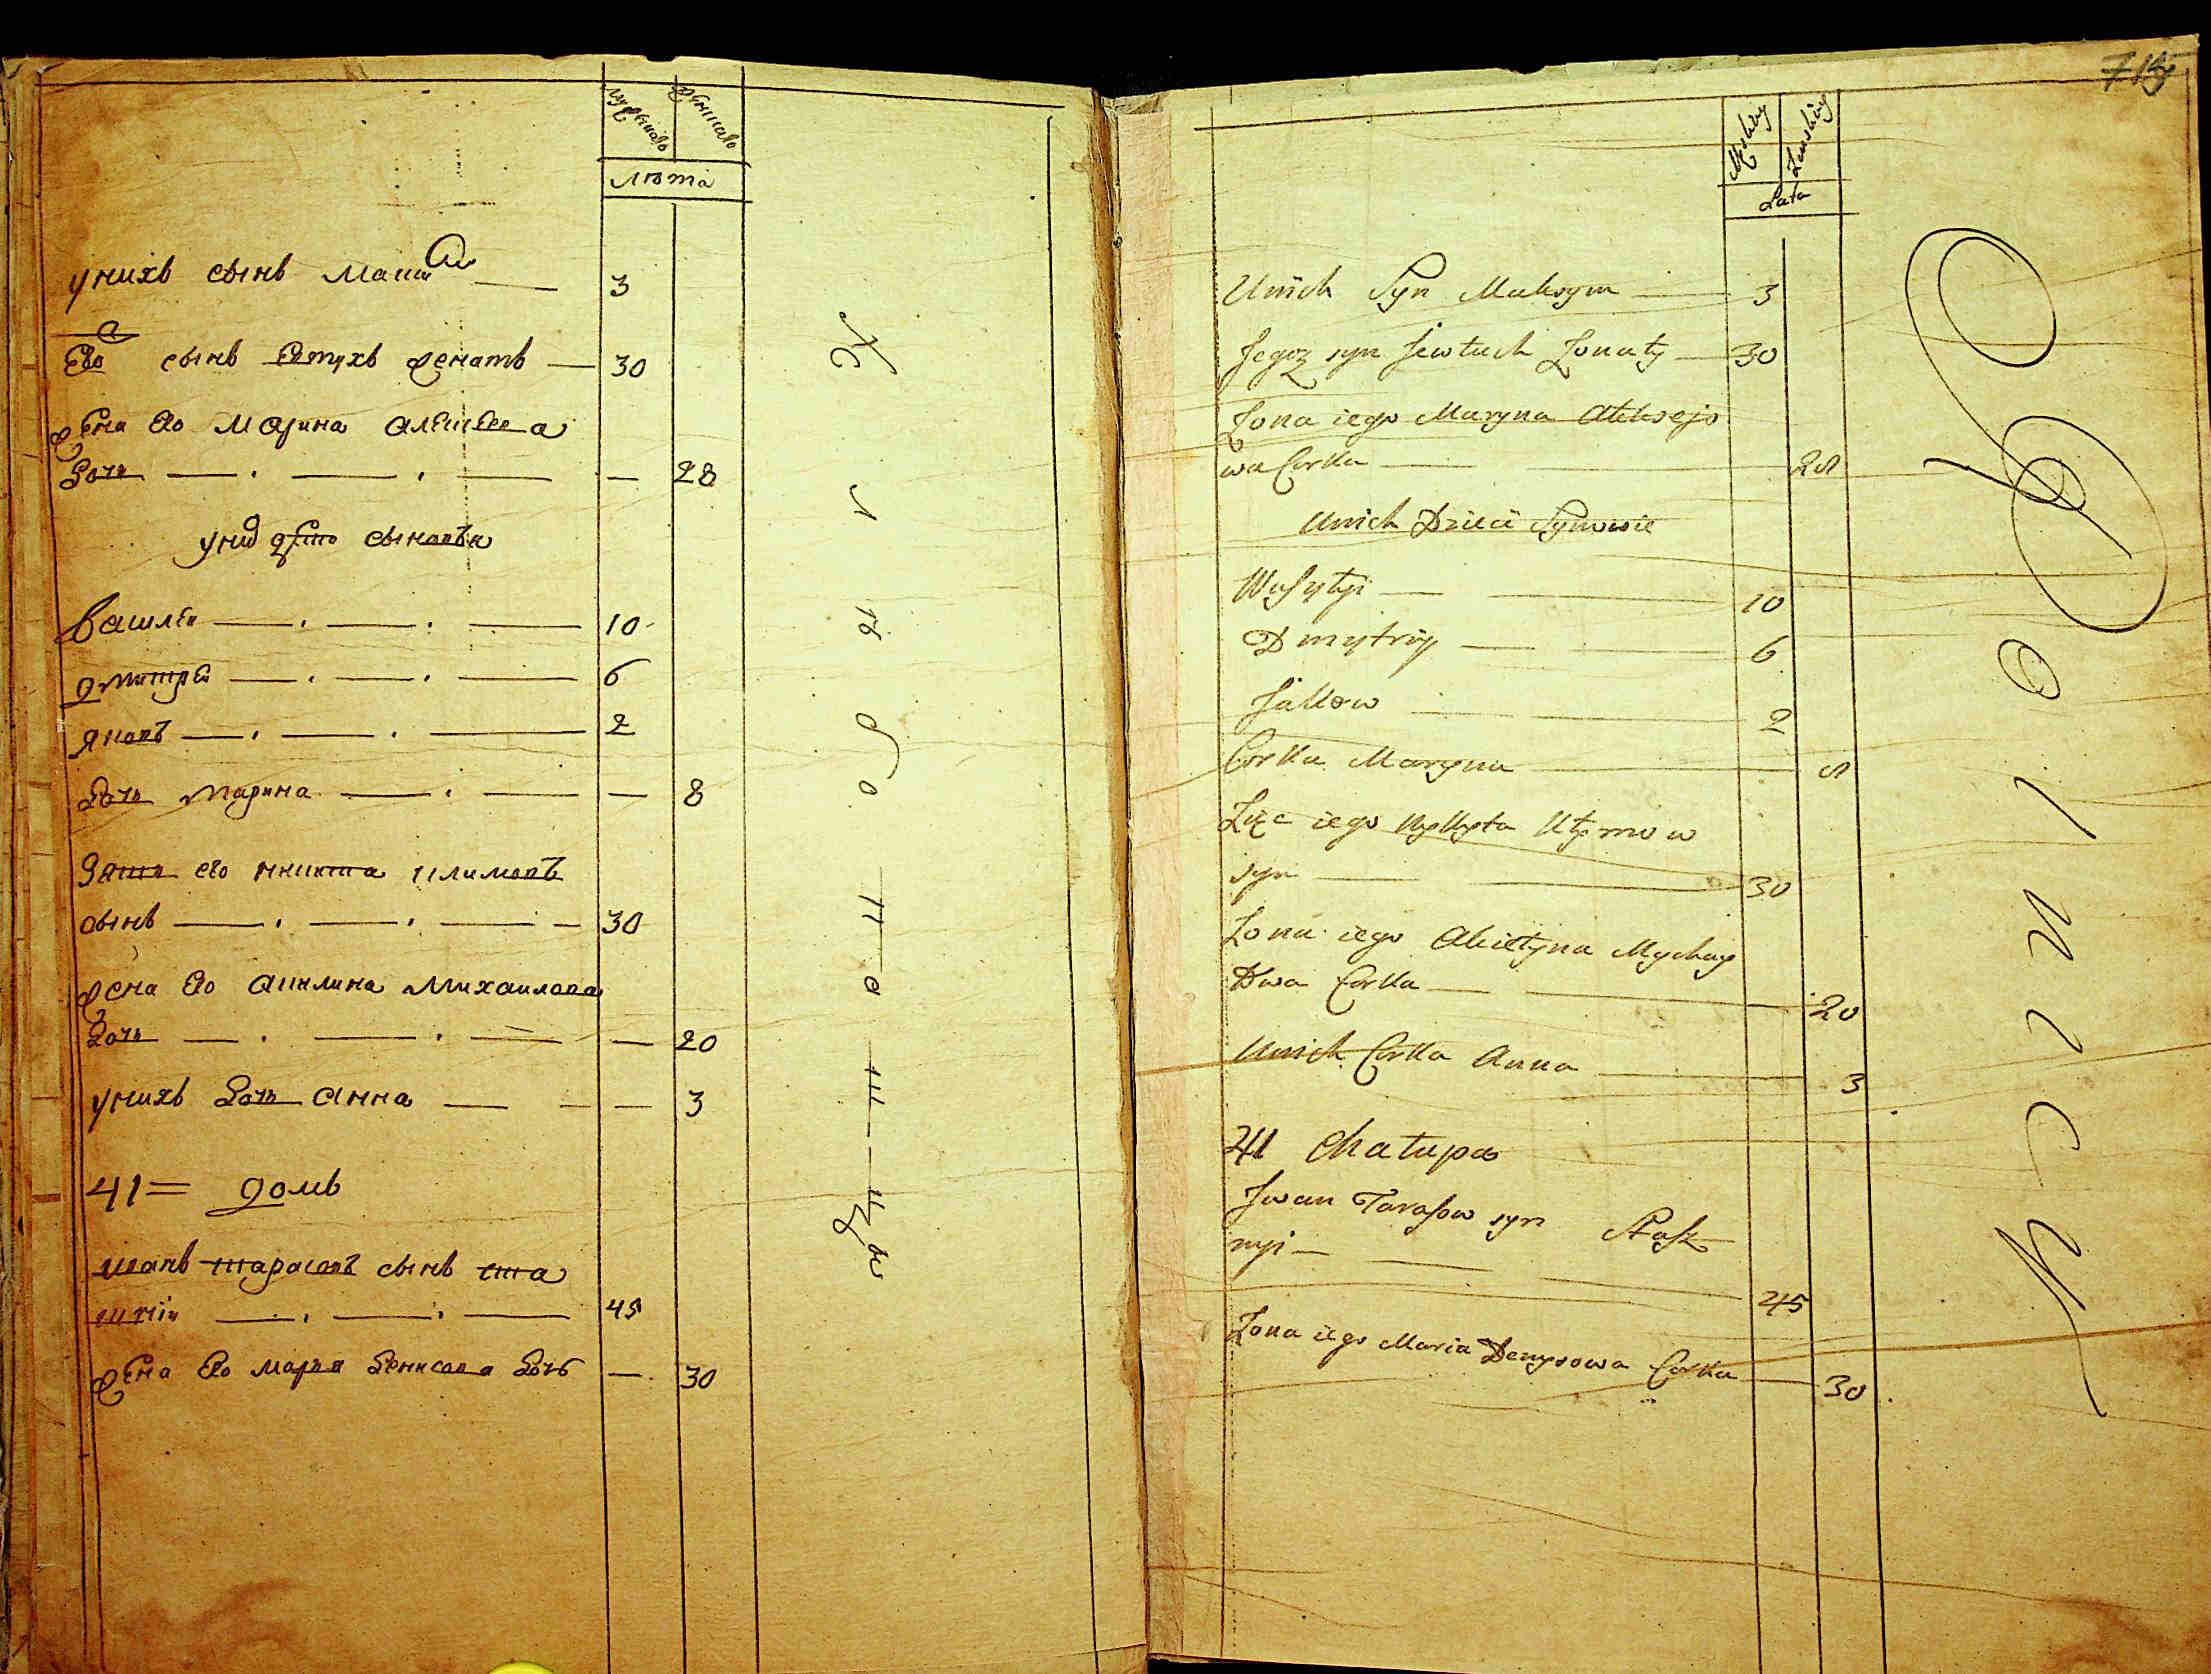 мужьска женска
лѣта
у нихъ сынъ Макси
3
Его сынъ Евтухъ женатъ
30
жена Его Марина Алексеева
дочь
28
у них дети сыновья
Василеи
10
дмитреи
6
яковъ
2
дочь Марина
8
Зять его никита климовъ
сынъ
30
жена Его Акилина Михаилова
дочь
20
у нихъ дочь Анна
3
41= домъ
иванъ тарасовъ сынъ ста
45
жена Его марья денисова дочь
30
Męskiey Zenskiey
Lata
Unich Syn Maksym
3
Jegoz syn Jewtuch Zonaty
30
Zona iego Maryna Aleksejo
wa Corka
28
Unich Dzieci Synowie
Wasylyi
10
Dmytriy
6
Jakow
2
Corka Maryna
8
Zięc iego Nykyta Klymow
syn
30
Zona iego Akielyna Mychay
lowa Corka
20
Unich Corka Anna
3
41 Chalupa
Iwan Tarasow syn
nyi
45
Zona iego Maria Denysowa Corka
30